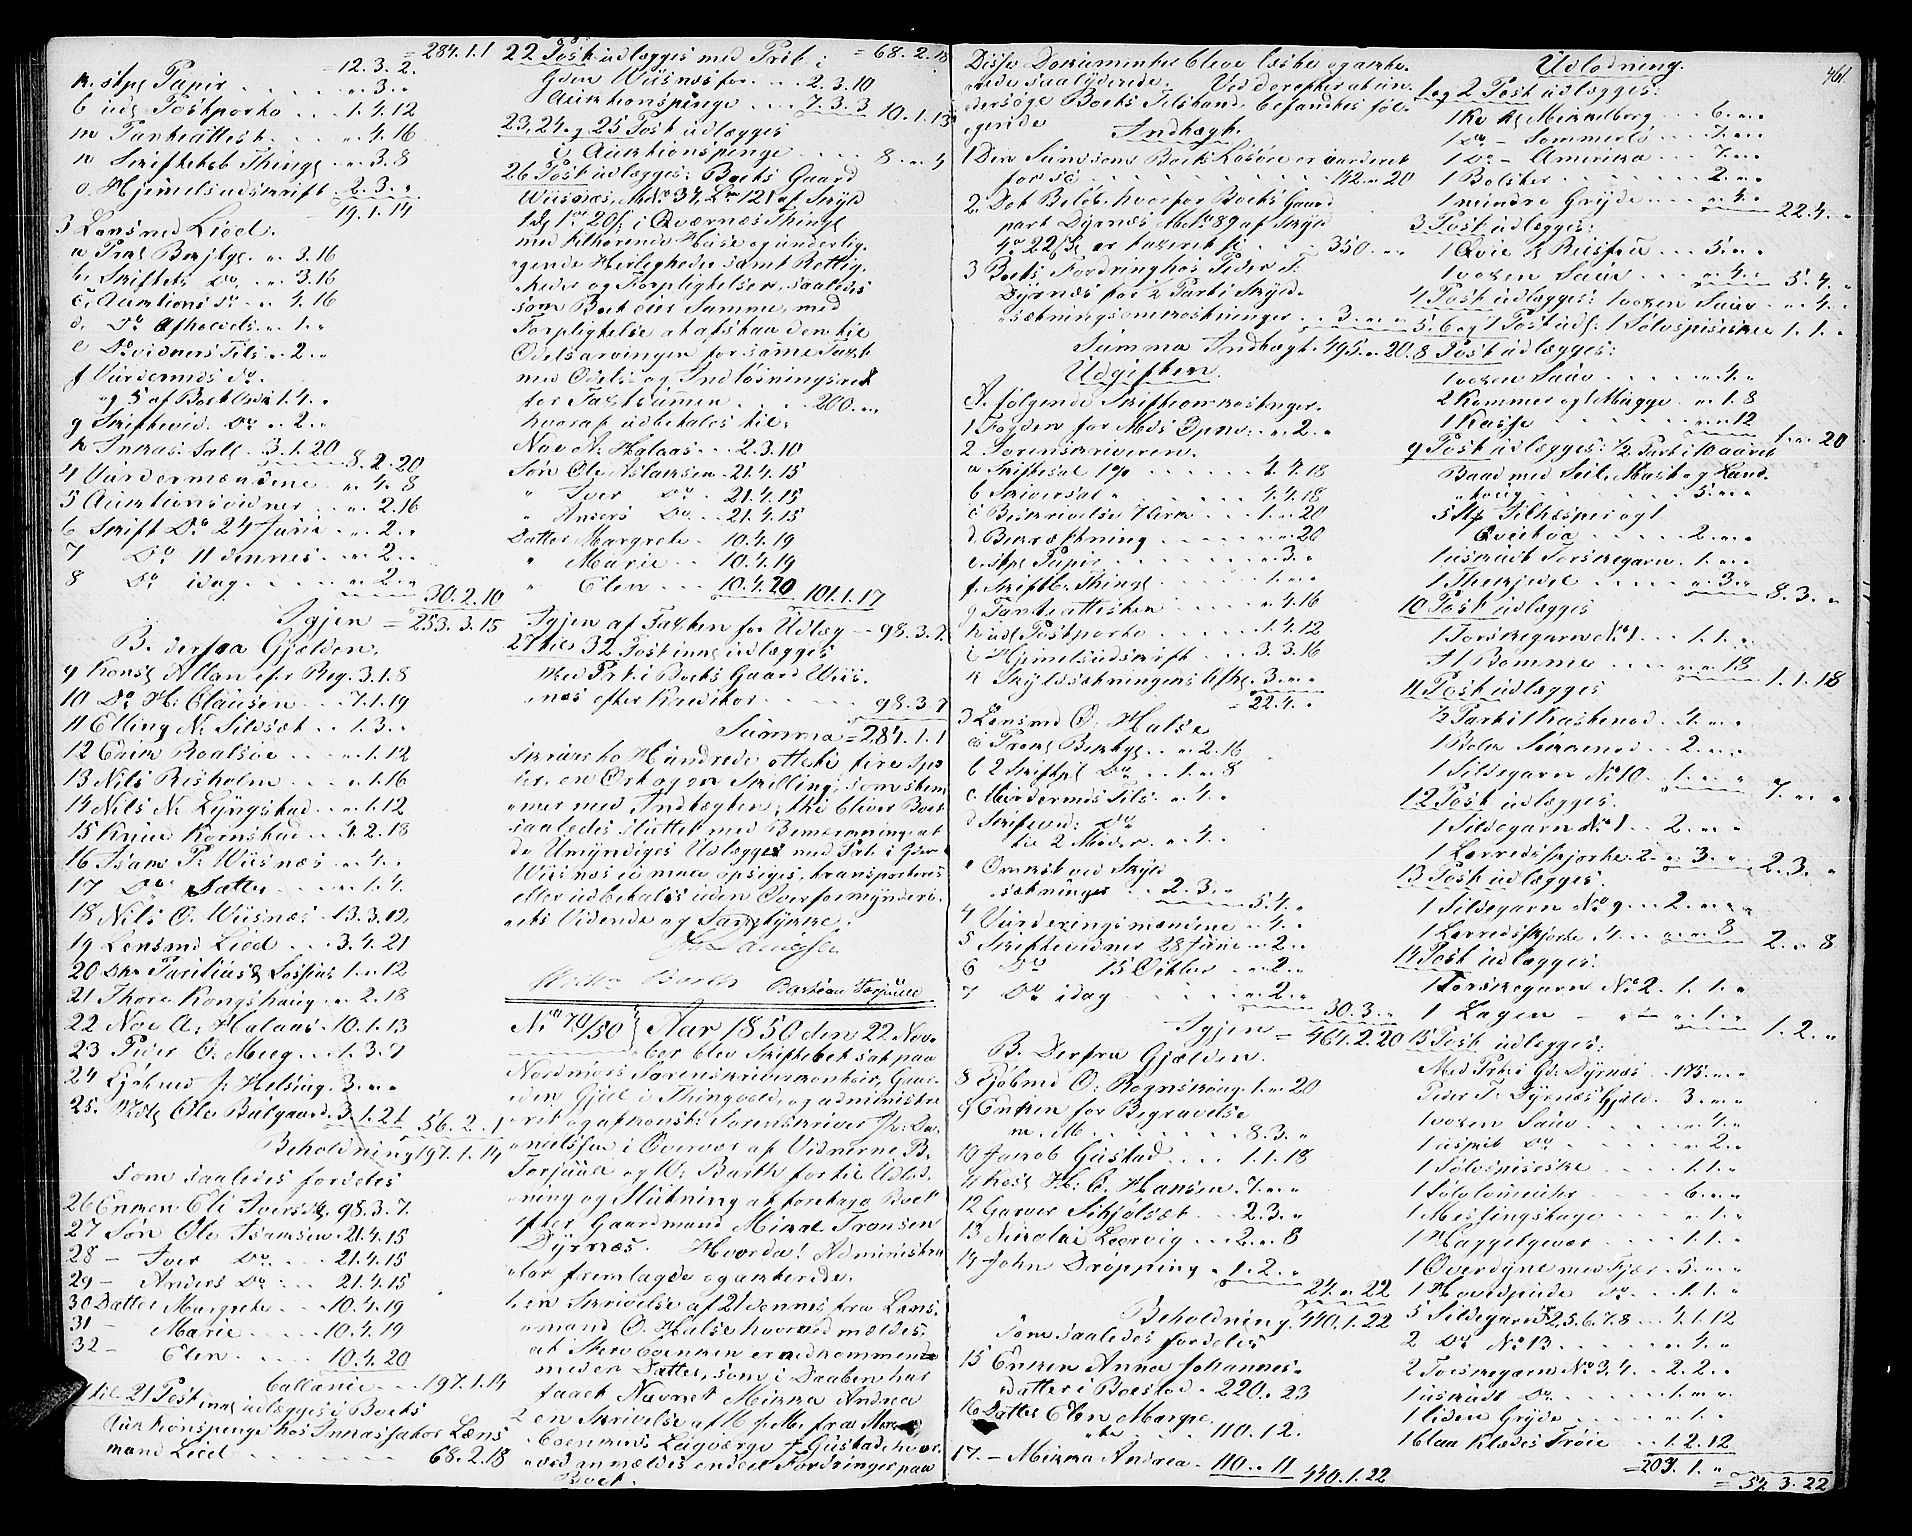 = 284.1.1
12.3.2.
k. stpl Papir . . . . . „.3.„
l. udl Postporto . . . 1.4.12
m Panteattest . . . „.4.16
n Skiftebeh Thingl „.3.8
o. Hjemmelsudskrift 2.3.„
19.1.14
3 Lensmd Lied.
a Prokl Besjtgl. „.3.16
b. Skiftets Do „.3.16
c Auktions do „.4.16
d. Do Afholdels. „.1.„
e Do vidners Tils. „.2.„
f Vurdermds do.
og 5 af Boet Uds 1.4.„
g Skiftevid. Do „.2.„
h Inkas: Sall. 3.1.20
8.2.20
4 Vurdermændene . „.4.8
5 Auktionsvidner . . „.2.16
6 Skift Do 24 Juni . „.2.„
7 Do 11 dennes . „.2.„
8 Do idag . . . . „.2.„
30.2.10
Igjen = 253.3.15
B. derfra Gjælden.
9 Konsl Allan efr Reg. 3.1.8
10 Do H. Clausen . . 7.1.19
11 Elling N. Sildset . 1.3.„
12 Endre Roalsøe . . . „.1.12
13 Nils Risholm . . . „.1.16
14 Nils N. Lyngstad . . „.1.12
15 Knud Kornstad . . 4.2.18
16 Isam P. Wiisnæs . . „.4.„
17 Do Datter . . . „.1.4.
18 Nils O. Wiisnæs . 13.3.12
19 Lensmd Lied . . . 3.4.21
20 Dhr Parelius & Lossius 1.„.12
21 Thore Kongshaug . „.2.18
22 Noe A. Halaas . 10.1.13
23 Peder O. Meeg . . . 1.3.7
24 Kjøbmd J. Helsing . 3.„.„
25. Ole Bulgaard . 3.1.21
56.2.1
Beholdning 197.1.14
som saaledes fordeles
26 Enken Eli Iversd. 98.3.7.
27 Søn Ole Isamsen . 21.4.15
28 — Iver Do . . . 21.4.15
29 — Anders Do . . . 21.4.15
30 Datter Margrete . . 10.4.19
31 — Marie . . . . 10.4.19
32 — Elen . . . . 10.4.20
Ballance . . . 197.1.14
1 til 21 Post inkl udlægges i Boets
Auktionspenge hos Inkassator Læns
mand Lied . . . . . . . 68.2.18
22 Post udlægges med Prt i = 68.2.18
Gden Wiisnæs for . . . 2.3.10
i Auktionspenge . . . 7.3.3 10.1.13
23, 24 og 25 Post udlægges
i Auktionspenge . . . . 8.„.4
26 Post udlægges: Boets Gaard
Wiisnæs, Mtr No 34, L No 121 af Skyld
1 dl 1 ort 20 s: i Qværnæs Thingl
med tilhørende Huse og underlig-
gende Herligheder samt Rettig-
heder og Forpligtelser, saaledes
som Boet eier Samme, med
Forpligtelse at afstaa den til
Odelsarvingen for samme Taxt
med Odels- og Indløsningsret
for Taxtsumen . . . . 200.„.„
hvoraf udbetales til:
Noe A. Halaas . . 2.3.10
Søn Ole Aslaksen . 21.4.15
„ Iver Do . . 21.4.15
„ Anders Do . . 21.4.15
Datter Margrete . . 10.4.19
„ Marie . . 10.4.19
„ Elen . . . 10.4.20 101.1.17
Igjen af Taxten for Udlæg — 98.3.7
27 til 32 Post inkl udlægges
Med Prt i Boets Gaard Wiis-
næs efter Kreditor . . . . . 98.3.7
Summa = 284.1.1
skriver to Hundrede otteti fire Spe-
cier, en Ort og en Skilling, som stem-
mer med Indtægten; thi bliver Boet
saaledes sluttet med Bemærkning: at
de Umyndiges Udlægges med Prt. i Gden
Wiisnæs ei maa opsiges, transporteres
eller udbetales uden Overformynderi-
ets Vidende og Samtykke.
W. Barth Torjuul
No 70/50 } Aar 1850 den 22 Nov-
ber blev Skifteret sat paa
Nordmørs Sorenskriverkontoir, Gaar-
den Gjul i Thingvold, og administre-
ret og afkonst: Sorenskriver Da-
nielsen i Overvær af Vidnerne B.
Torjuul og W. Barth for til Udlod-
ning og Slutning at foretage Boet
efter Gaardmand Mikal Transen
Dyrnæs. Hvorda! Administra-
tor fremlagde og akterede.
1. en Skrivelse af 21 dennes fra Lens-
mand O. Halse hvorved meldes
at Sterv Enken er nedkommen
med en Datter, som i Daaben har
faaet Navnet Mikka Andrea
2 en Skrivelse af fra
Enkens Laugværge J. Gustad hvor-
ved anmeldes endeel Fordringer paa
Boet.
461
Disse Dokumenter bleve læste og akte-
rede saalydende. Ved derefter at un-
dersøge Boets Tilstand, befandtes føl-
gende Indtægt.
1 Den Sum som Boets Løsøre er vurderet
for sc . . . . . . . . . 142.„.20
2. Det Beløb hvorfor Boets Gaard
part Dyrnæs Mtr No 89 af Skyld
4 o 22 s er taxeret sc . . . 350.„.„
3 Boets Fordring hos Peder T.
Dyrnæs for ½ Part i Skyld-
sætningsomkostninger . . 3.„.„
Summa Indtægt 495.„.20
Udgiften.
A. følgende Skifteomkostnger.
1 Fogden for Mds Opnv: . . „.2.„
2 Sorenskriveren.
a Skiftesal 1 pc . . . . . 4.4.18
b Skriversal „ . . . . 4.4.18
c Beskrivelse 7 Ark . . . 1.„.20
d Bekræftning . . . . . „.„.20
e. stpl Papir . . . . . „.3.„
f. Skiftb. Thingl . . . . 1.„.„
g Panteattesten . . . . „.4.16
h udl Postporto . . . . 1.4.12
i Hjemmelsudskrift . . . 3.3.16
k Skyldsætningens Afhl . 3.„.„
= 22.4.„
3 Lensmd O. Halse
a Prokl Bektgl. . „.2.16
b 2 Skiftpl Do . . „.1.„.8
c Vurdermds Tils. „.4.„
d Skiftevid: Do
til 2 Møder . . „.4.„
e Omkst ved Skyld
sætningen . . 2.3.„
5.4.„
4 Vurderingsmændene . . „.4.„
5 Skiftevidner 28 Juni . . „.2.„
6 Do 15 Oktbr . . „.2.„
7 Do idag . . . . . „.2.„
30.3.„
Igjen = 461.2.20
B. Derfra Gjælden.
8 Kjøbmd O. Rognskoug . 1.„.20
9 Enken for Begravelse
m. M. . . . . . . . 8.3.„
10 Jakob Gustad . . . . 1.1.18
11 H. C. Hansen . 7.„.„
12 Garver Skjølsæt . . . 2.3.„
13 Nikolai Leervig . . . 2.„.8
14 John Drøpping . . . 1.2.„
24.„.22
Beholdning . 440.1.22
som saaledes fordeles
15 Enken Anna Johannes-
datter i Boeslod . 220.„.23
16 Datter Elen Margre-
te . . . . 110.„.12.
17. — Mikka Andrea . 110.„.11
440.1.22
Udlodning.
1 og 2 Post udlægges:
1 Ko kl Mikkelborg . . . 6.„.„
1 Do — Sommerlø . . . 7.„.„
1 Do — Amerika . . . 7.„.„
1 Bolster . . . . . . 2.„.„
1 mindre Gryde . . . . „.4.„ 22.4.„
3 Post udlægges:
1 Qvie kl Riisfru . . . 5.„.„
1 voxen Sauv . . . . „.4.„ 5.4.„
4 Post udlægges: 1 voxen Sauv . „.4.„
5, 6 og 7 Post udl: 1 Sølvspiseskee 1.1.„
8 Post udlægges:
1 voxen Sauv . . . . . „.4.„
2 Kommer og 1 Mugge . . „.1.8
1 Kasse . . . . . . . „.„.12 1.„.20
9 Post udlægges: ½ Part i 10 aaret
Baad med Seil, Mast og Land-
toug . . . . . . . 5.„.„
5 Stk Fiskesper og 1
. . . . . 2.„.„
1 uskudt Torskegarn . 1.„.„
1 Thekjedel . . . . . „.3.„ 8.3.„
10 Post udlægges
1 Torskegarn No 1 . . . 1.1.„
1 Bomme . . . . . „.„.18 1.1.18
11 Post udlægges
½ Part i Kastenod . . 4.„.„
1 Nod . . . 2.„.„
1 Sildegarn No 10 . . . 1.„.„ 7.„.„
12 Post udlægges.
1 Sildegarn No 1 . . 2.„.„
1 Lærredsskjorte 2. „.3.„ 2.3.„
13 Post udlægges.
1 Sildegarn No 9 . . 2.„.„
1 Lærredsskjorte 4 . . „.„.8 2.„.8
14 Post udlægges:
1 Torskegarn No 2 . 1.1.„
1 Lagen — „.1.„ 1.2.„
15 Post udlægges:
Med Prt i Gd: Dyrnæs . 175.„.„
Peder T. Dyrnæs Gjæld . 3.„.„
1 voxen Sauv . . . . . „.4.„
1 Do . . . . . „.2.„
1 Sølvspiseske . . . . 1.1.„
1 Sølvlomeuhr . . . . 6.„.„
1 Messingstage . . . . „.1.„
1 Haggelgevær . . . . 1.1.„
1 Overdyne med Fjær . 5.„.„
1 Hovedpude do . . . 1.1.„
5 Sildegarn No 2,5.6.7.8 . . 4.1.12
2 Do No 13 . . . . „.4.„
2 Torskegarn No 3,4 . . 2.2.„
1 uskudt Do . . . . . 1.„.„
1 liden Gryde . . . . „.1.„
1 blaa Klædes Trøie . . 1.2.12
= 203.1.„
= 54.3.22